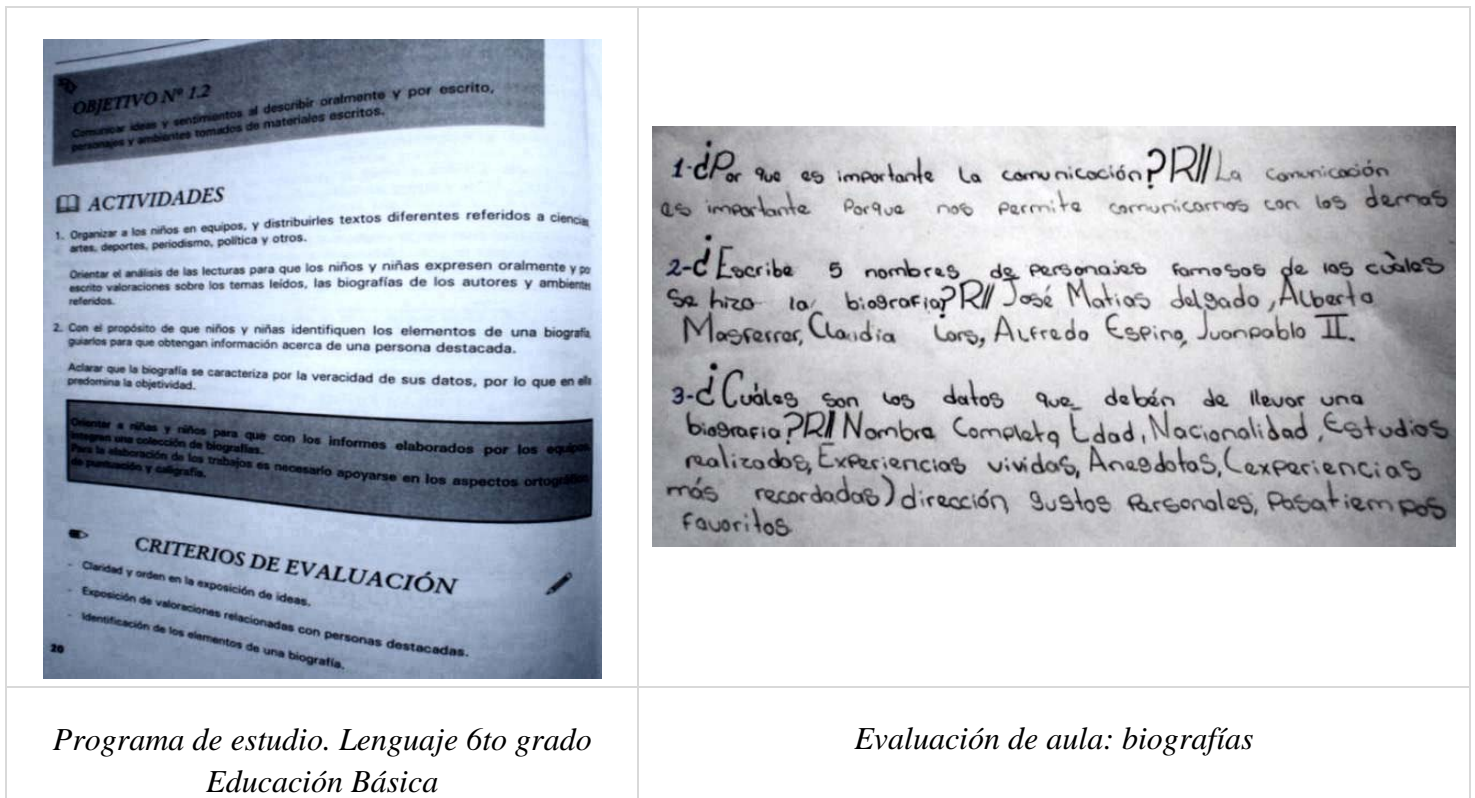 OBJETIVO Nº 1.2
Comunicar ideas y sentimientos al describir oralmente y por escrito,
personajes y ambientes tomados de materiales escritos.
ACTIVIDADES
1. Organizar a los niños en equipos, y distribuirles textos diferentes referidos a ciencias
artes, deportes, periodismo, política y otros.
Orientar el análisis de las lecturas para que los niños y niñas expresen oralmente y po
escrito valoraciones sobre los temas leídos, las biografías de los autores y ambientes
referidos.
2. Con el propósito de que niños y niñas identifiquen los elementos de una biografía
guiarlos para que obtengan información acerca de una persona destacada.
Aclarar que la biografía se caracteriza por la veracidad de sus datos, por lo que en ella
predomina la objetividad.
Orientar a niñas y niños para que con los informes elaborados por los equipos
integren una colección de biografías.
Para la elaboración de los trabajos es necesario apoyarse en los aspectos ortográficos
de puntuación y caligrafía.
CRITERIOS DE EVALUACIÓN
- Claridad y orden en la exposición de ideas.
- Exposición de valoraciones relacionadas con personas destacadas.
- Identificación de los elementos de una biografía.
20
1-¿Por que es importante la comunicación? R// La comunicación
es importante Porque nos permite comunicarnos con los demas
2-¿Escribe 5 nombres de personajes famosos de los cuàles
se hizo la biografia? R// José Matias delgado, Alberto
Masferrer, Claudia Lars, Alfredo Espino, Juanpablo II.
3-¿Cuàles son los datos que debén de llevar una
biografia? R// Nombre Completo, Edad, Nacionalidad, Estudios
realizados, Experiencias vividas, Anegdotas, (experiencias
más recordadas) dirección gustos Personales, Pasatiempos
favoritos
Programa de estudio. Lenguaje 6to grado
Educación Básica
Evaluación de aula: biografías